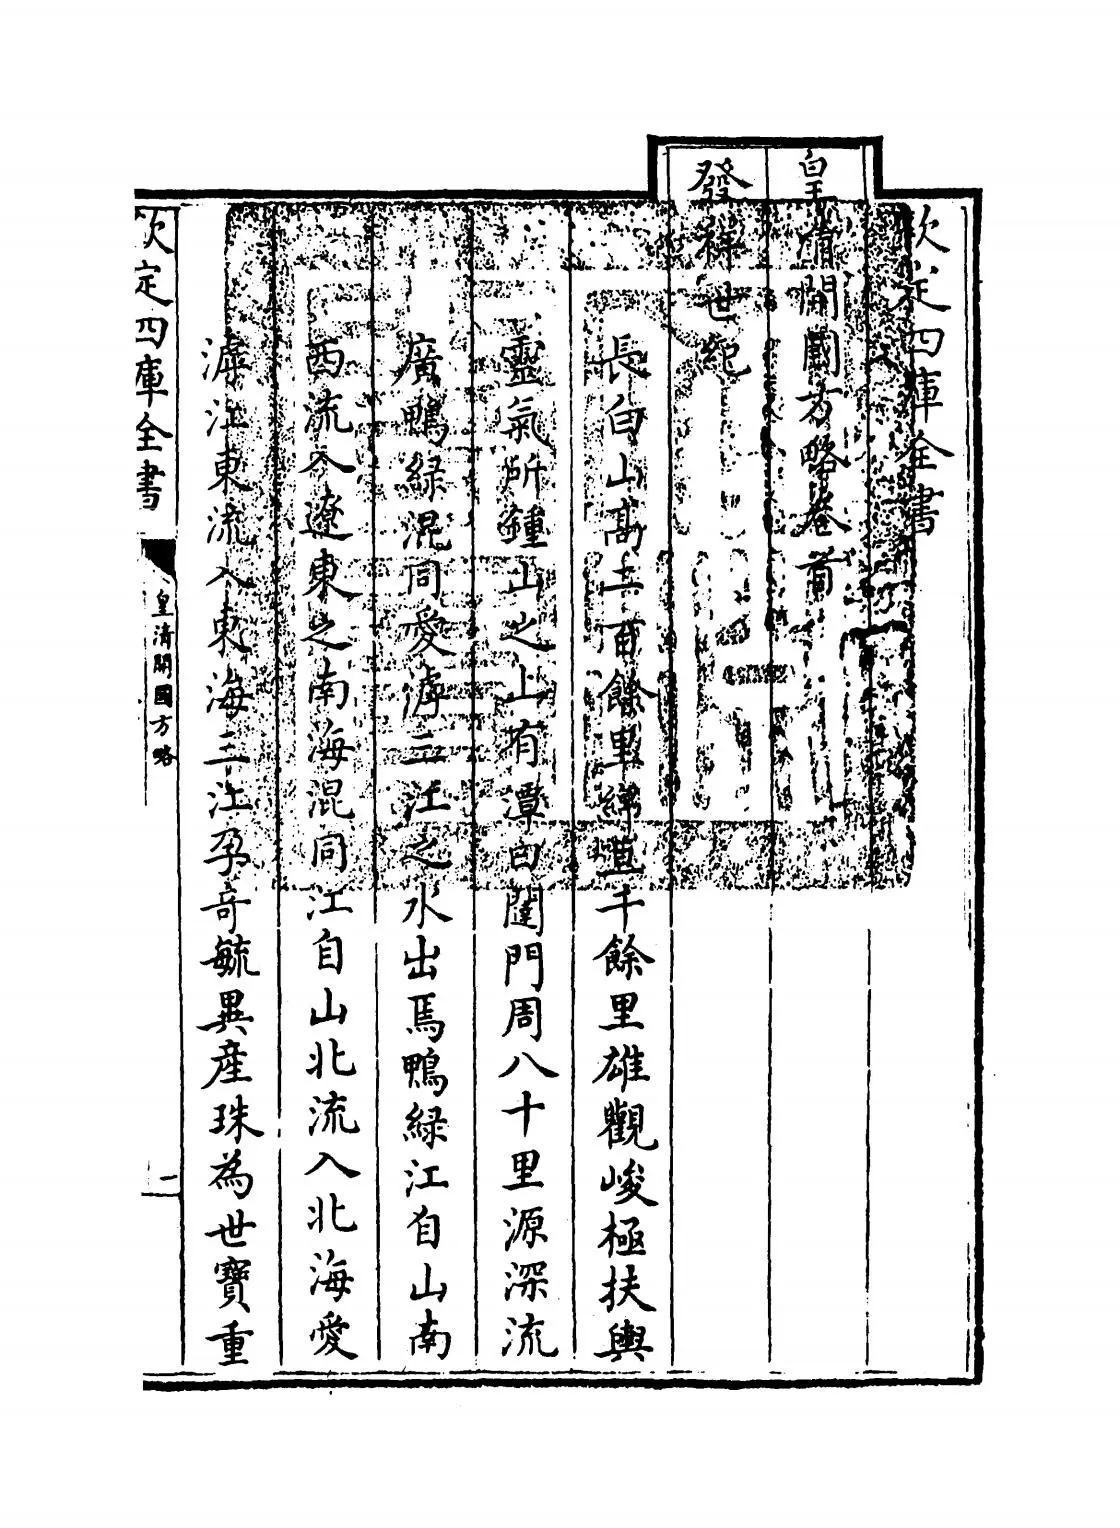 欽定四庫全書
皇清開國方略卷首
發祥世紀
長白山高二百餘里綿亘千餘里雄觀峻極扶輿
靈氣所鍾山之上有潭曰闥門周八十里源深流
廣鴨緑混同愛滹三江之水出焉鴨緑江自山南
西流入遼東之南海混同江自山北流入北海愛
滹江東流入東海三江孕奇毓異産珠為世寶重
欽定四庫全書
皇清開國方略
一